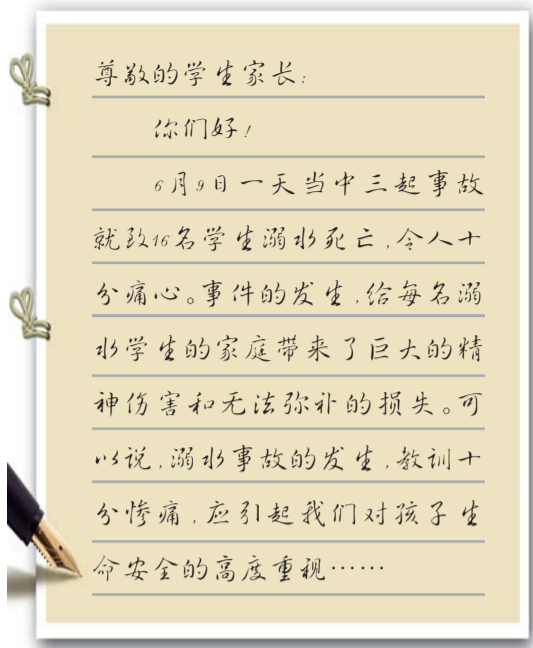 尊敬的学生家长:
你们好!
6月9日一天当中三起事故
就致16名学生溺水死亡,令人十
分痛心。事件的发生,给每名溺
水学生的家庭带来了巨大的精
神伤害和无法弥补的损失。可
以说,溺水事故的发生,教训十
分惨痛,应引起我们对孩子生
命安全的高度重视……